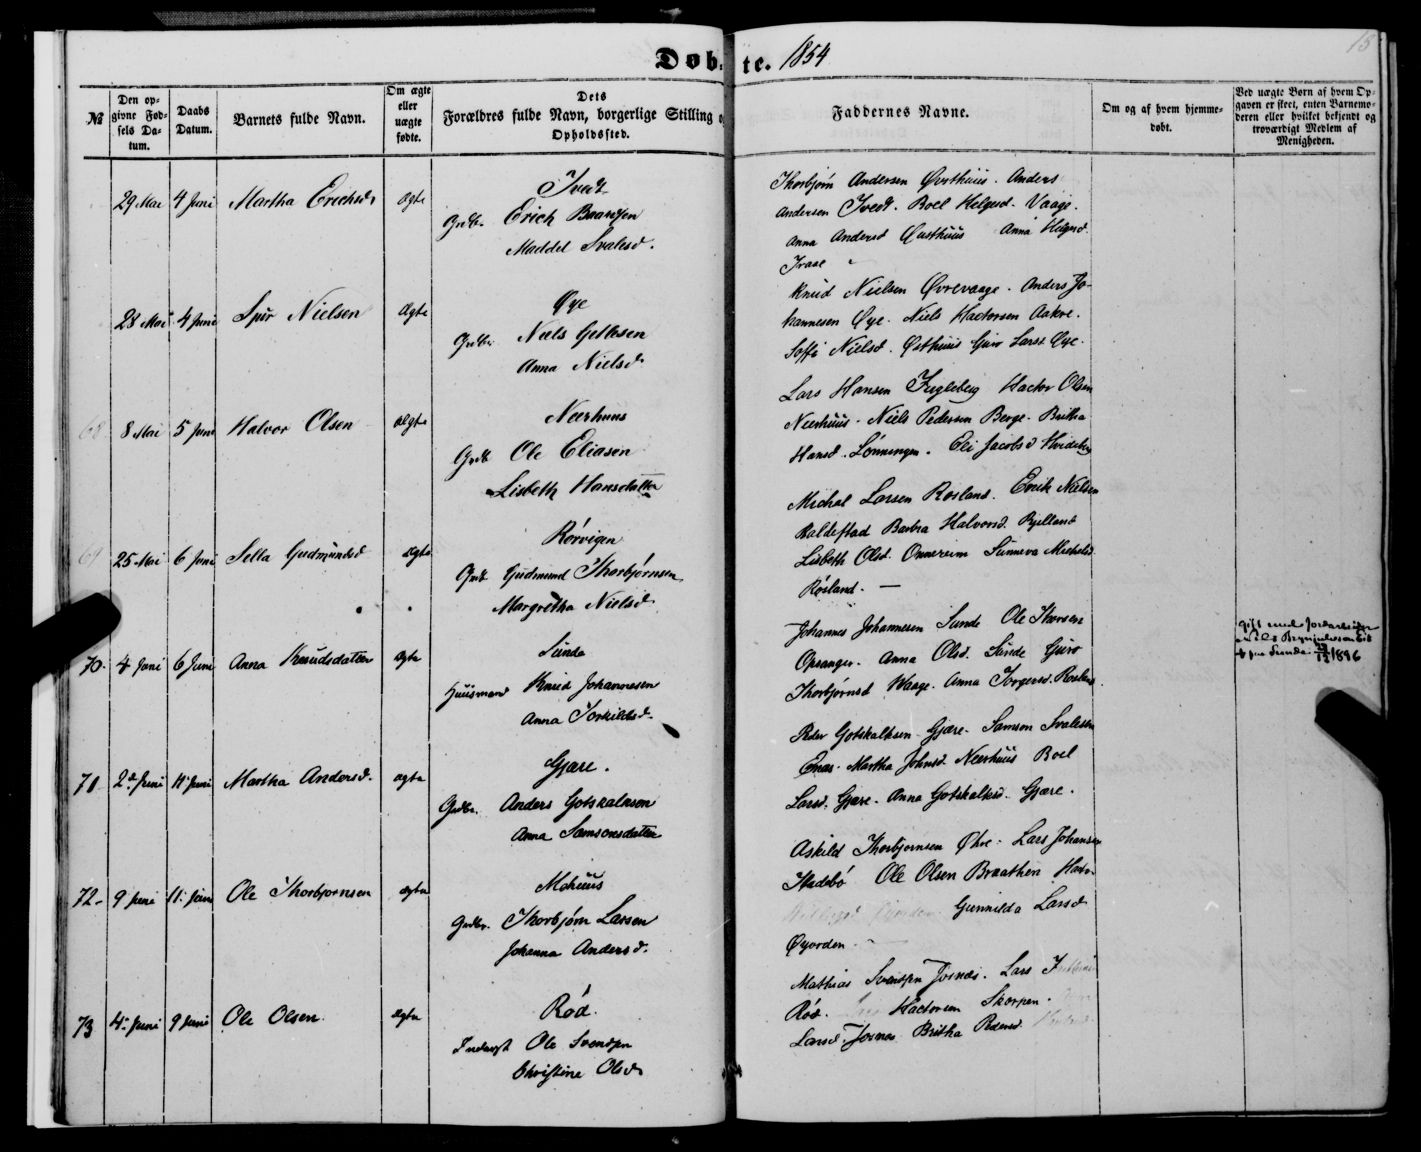 15
Døbte. 1854
№
Den opgivne Fødsels Datum.
Daabs Datum.
Barnets fulde Navn.
Om ægte eller uægte fødte.
Dets Forældres fulde Navn, borgerlige Stilling o
Opholdssted.
Faddernes Navne.
Om og af hvem hjemmedøbt.
Ved uægte Børn af hvem Opgaven er skeet, enten Barnemoderen eller hvilket bekjendt og troværdigt Medlem af Menigheden.
29 Mai 4 Juni Martha Erichsd. ægte
Tvedt
Grdbr. Erich Baardsen
Maddel Svalesd.
Thorbjørn Andersen Østhuus. Anders
Andersen Tvedt. Boel Helgesd. Vaage.
Anna Andersd Østhuus Anna Helgesd
28 Mai 4 Juni Nielsen ægte
Øye
Grdbr. Niels Gitlesen
Anna Nielsd
Knud Nielsen Øvrevaage. Anders Johannesen
Øye. Niels Hactorsen Aakre.
Soffi Nielsd. Østhuus Guro Larsd Øye.
68 8 Mai 5 Juni Halvor Olsen ægte
Neerhuus
Grdb Ole Eliasen
Lisbeth Hansdatter
Lars Hansen Fugleberg Hactor Olsen
Neerhuus. Niels Pedersen Berge. Britha
Hansd. Lønningen. Eli Jacobsd
69 25 Mai 6 Juni Sella Gudmundsd ægte
Rørvigen
Grdb Gudmund Thorbjørnsen
Margretha Nielsd
Michal Larsen Rosland. Enik Nielsen
Baldestad Barbra Halvorsd. Kjelland
Lisbeth Olsd. Onnereim Sunneva Michelsd
Røsland. —
70. 4 Juni 6 Juni Anna Knudsdatter ægte
Sunde
Huusmand Knud Johannesen
Anna Torkildsd.
Johannes Johannesen Sunde Ole Iversen
Opsanger. Anna Olsd. Sunde Guro
Thorbjørnsd Waage. Anna Torgersd. Rosland
Gift med
Niels Brynjulvsen
Sunde 1896
71 2d. Juni 11 Juni Martha Andersd. ægte
Gjære.
Grdbr. Anders Gotskalksen
Anna Samsonsdatter
Peder Gotskalksen Gjære. Samson Svalesen
Enes. Martha Johnsd. Neerhuus Boel
Larsd. Gjære. Anna Gotskalksd. Gjære.
72 9 Juni 11. Juni Ole Thorbjørnsen ægte
Mehuus
Grdbr. Thorbjørn Larsen
Johanna Andersd.
Askild Thorbjørnsen Øhre. Lars Johansen
Ole Olsen Braathen
Gunnilda Larsd
73 4. Juni 9 Juni Ole Olsen ægte
Rød.
Inderst Ole Svendsen
Christine Olsd
Mathias Svendsen Josnæs. Lars
Rød. Hactorsen Skorpen.
Larsd. Josnæs Britha Pedersd